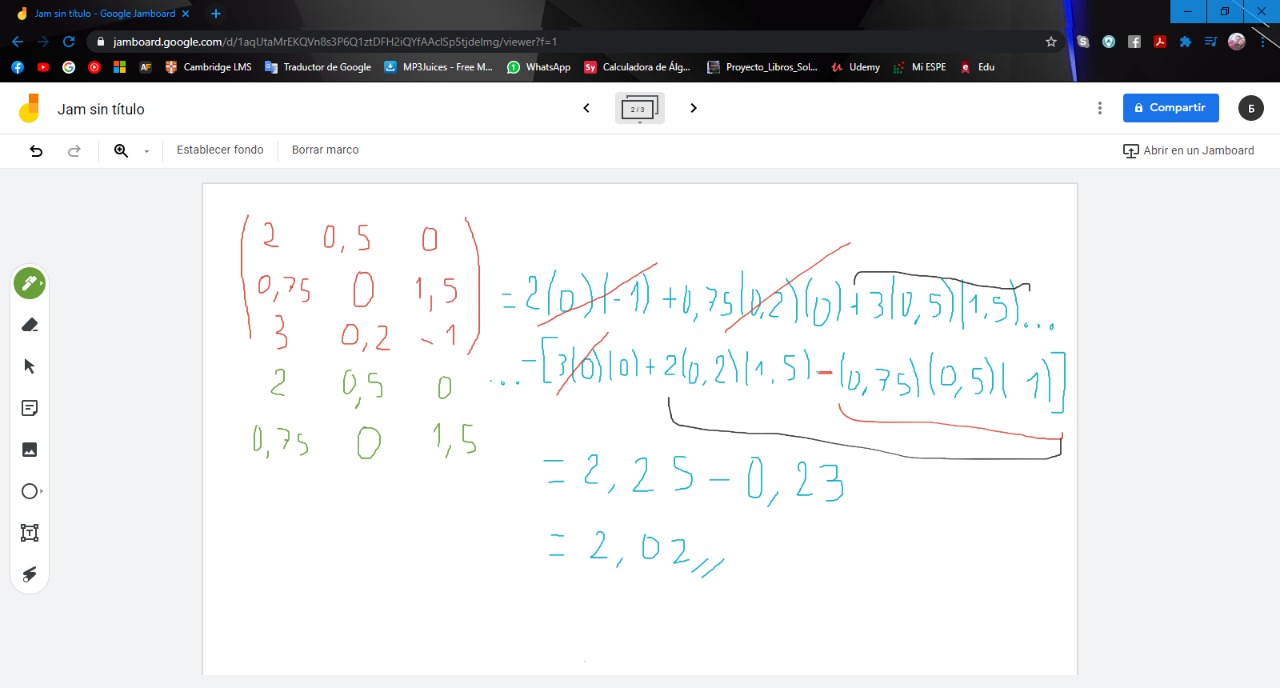 Jam sin título - Google Jamboard
jamboard.google.com/d/1aqUtaMrEKQVn8s3P6Q1ztDFH2iQYfAAclSp5tjdelmg/viewer?f=1
Cambridge LMS Traductor de Google MP3Juices - Free M... WhatsApp Calculadora de Álg... Proyecto_Libros_Sol... Udemy Mi ESPE Edu
Jam sin título
2 / 3
Compartir
Б
Establecer fondo Borrar marco
Abrir en un Jamboard
2 0,5 0
0,75 0 1,5
3 0,2 -1
2 0,5 0
0,75 0 1,5
= 2(0)(-1) + 0,75(0,2)(0) + 3(0,5)(1,5)...
...-[3(0)(0) + 2(0,2)(1,5) - (0,75)(0,5)( 1)]
= 2,25 - 0,23
= 2,02//